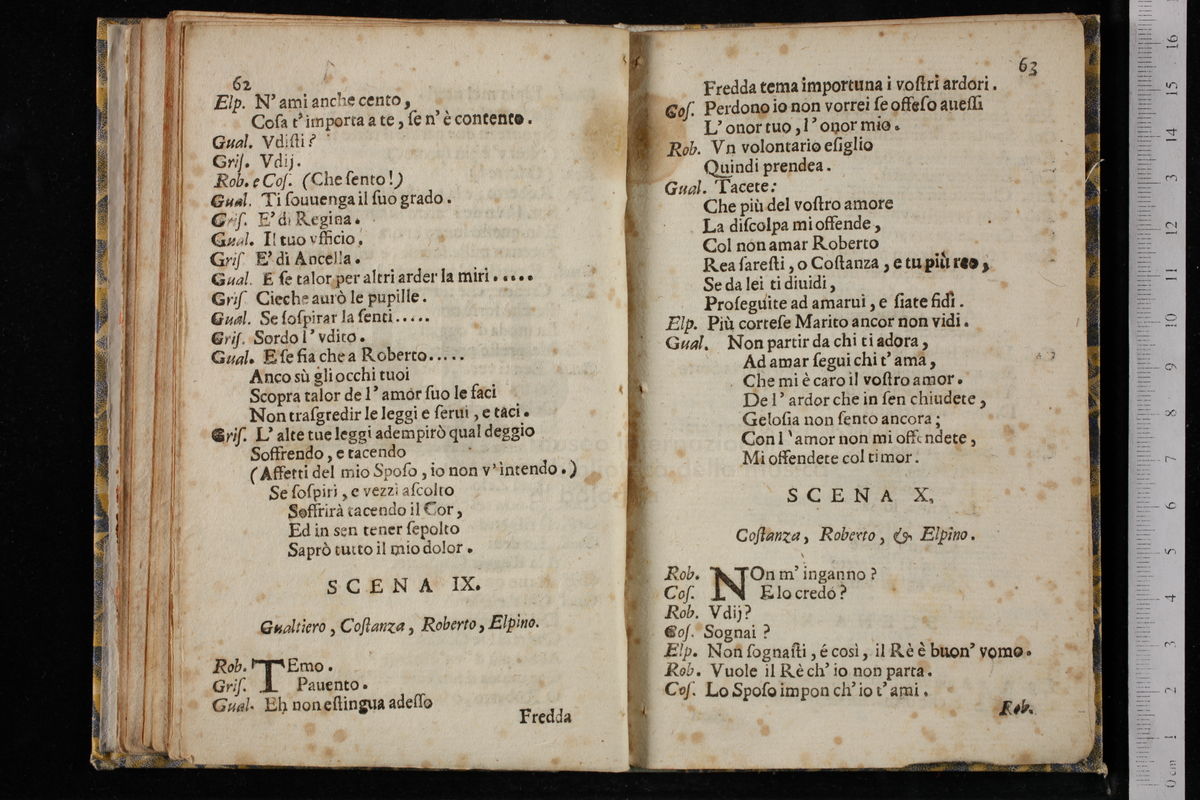 62
Elp. N' ami anche cento,
Coſa t' importa a te, ſe n' è contento.
Gual. Vdiſti?
Griſ. Vdij.
Rob. e Coſ. (Che ſento!)
Gual. Ti ſouuenga il ſuo grado.
Griſ. E' di Regina.
Gual. Il tuo vfficio,
Griſ E' di Ancella.
Gual. E ſe talor per altri arder la miri.....
Griſ Cieche aurò le pupille.
Gual. Se ſoſpirar la ſenti.....
Griſ. Sordo l' vdito.
Gual. E ſe fia che a Roberto.....
Anco sù gli occhi tuoi
Scopra talor de l' amor ſuo le faci
Non traſgredir le leggi e ſerui, e taci.
Griſ. L' alte tue leggi adempirò qual deggio
Soffrendo, e tacendo
(Affetti del mio Spoſo, io non v' intendo.)
Se ſoſpiri, e vezzi aſcolto
Soffrirà tacendo il Cor,
Ed in sen tener ſepolto
Saprò tutto il mio dolor.
SCENA IX.
Gualtiero, Coſtanza, Roberto, Elpino.
Rob. TEmo.
Griſ. Pauento.
Gual. Eh non eſtingua adeſſo
Fredda
63
Fredda tema importuna i voſtri ardori.
Coſ. Perdono io non vorrei ſe offeſo aueſſi
L' onor tuo, l' onor mio.
Rob. Vn volontario eſiglio
Quindi prendea.
Gual. Tacete:
Che più del voſtro amore
La diſcolpa mi offende,
Col non amar Roberto
Rea ſareſti, o Coſtanza, e tu più reo,
Se da lei ti diuidi,
Proſeguite ad amarui, e ſiate fidi.
Elp. Più corteſe Marito ancor non vidi.
Gual. Non partir da chi ti adora,
Ad amar ſegui chi t' ama,
Che mi è caro il voſtro amor.
De l' ardor che in ſen chiudete,
Geloſia non ſento ancora;
Con l' amor non mi offendete,
Mi offendete col timor.
SCENA X.
Coſtanza, Roberto, & Elpino.
Rob. NOn m' inganno?
Coſ. E lo credo?
Rob. Vdij?
Coſ. Sognai?
Elp. Non ſognaſti, é così, il Rè è buon' vomo.
Rob. Vuole il Rè ch' io non parta.
Coſ. Lo Spoſo impon ch' io t' ami.
Rob.